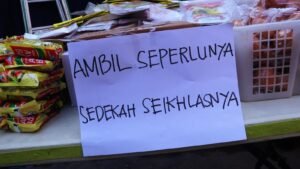 AMBIL SEPERLUNYA
SEDEKAH SEIKHLASNYA